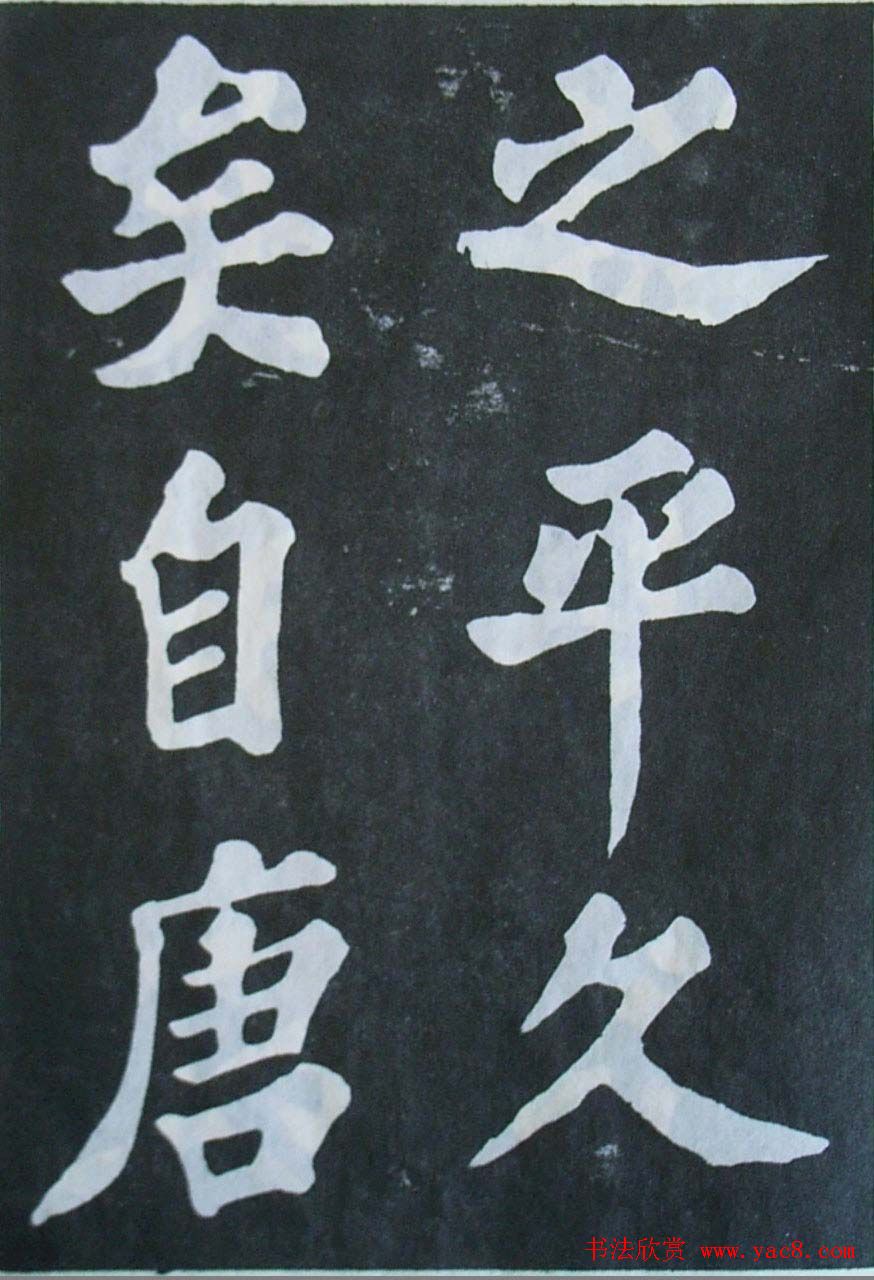 之平久
矣自唐
书法欣赏 www.yac8.com